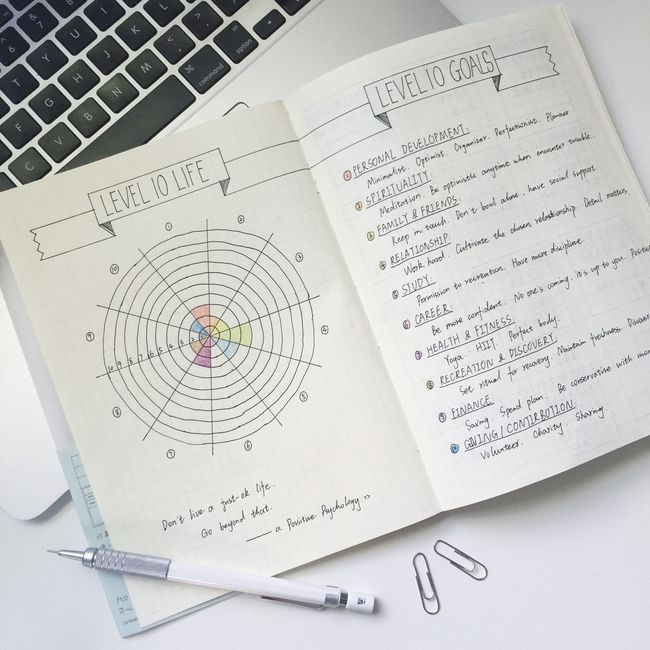 LEVEL 10 LIFE
① ② ③ ④ ⑤ ⑥ ⑦ ⑧ ⑨ ⑩
10 9 8 7 6 5 4 3 2 1
Don't live a just ok life.
Go beyond that.
—— « Positive Psychology »
LEVEL 10 GOALS
① PERSONAL DEVELOPMENT:
Minimalist. Optimist. Organizer. Perfectionist. Planner
② SPIRITUALITY:
Meditation. Be optimistic anytime when encounter trouble.
③ FAMILY & FRIENDS:
Keep in touch. Don't bowl alone, have social support.
④ RELATIONSHIP:
Work hard. Cultivate the chosen relationship. Detail matters.
⑤ STUDY:
Permission to recreation. Have more discipline.
⑥ CAREER:
Be more confident. No one's coming, it's up to you.
⑦ HEALTH & FITNESS:
Yoga. HIIT. Perfect body.
⑧ RECREATION & DISCOVERY:
Set ritual for recovery. Maintain freshness.
⑨ FINANCE:
Saving. Spend plan. Be conservative with
⑩ GIVING / CONTIRBUTION:
Volunteer. Charity. Sharing.
command
option